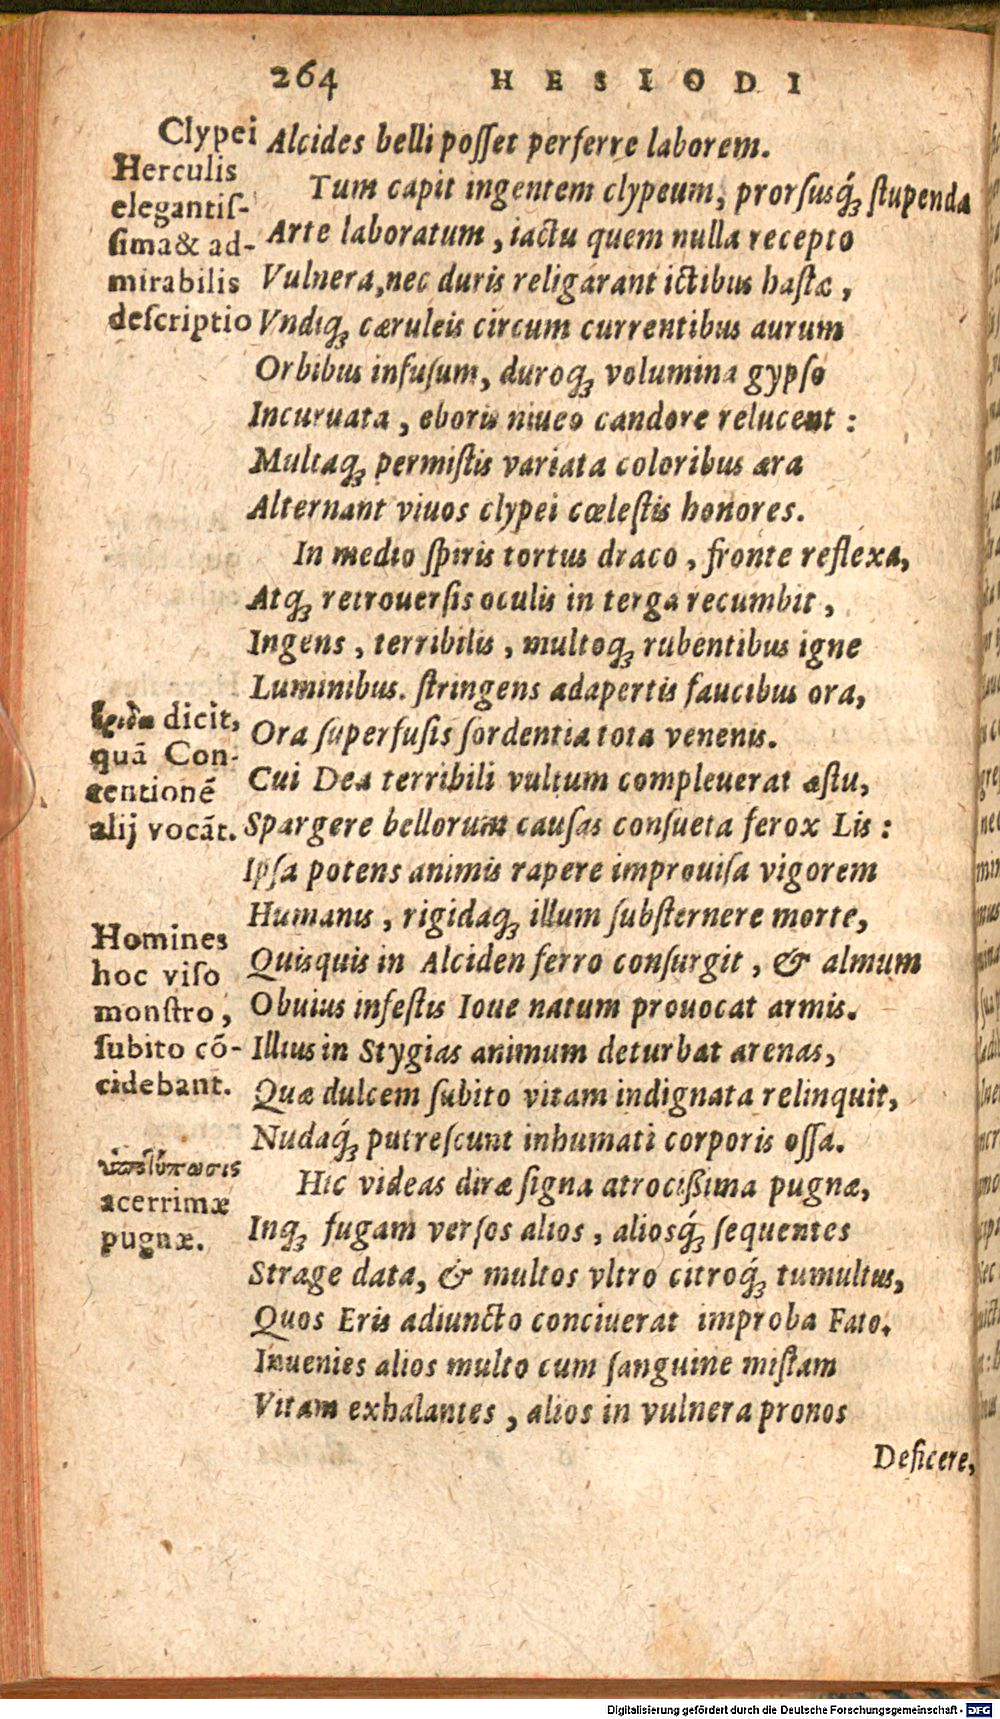 264 HESIODI
Clypei
Herculis
elegantiſ-
ſima & ad-
mirabilis
deſcriptio
Alcides belli poſſet perferre laborem.
Tum capit ingentem clypeum, prorſusq́; ſtupenda
Arte laboratum, iactu quem nulla recepto
Vulnera, nec duris religarant ictibus haſtæ,
Vndiq; cæruleis circum currentibus aurum
Orbibus infuſum, duroq; volumina gypſo
Incuruata, eboris niueo candore relucent:
Multaq; permiſtis variata coloribus æra
Alternant viuos clypei cœleſtis honores.
In medio ſpiris tortus draco, fronte reflexa,
Atq; retrouerſis oculis in terga recumbit,
Ingens, terribilis, multoq; rubentibus igne
Luminibus. ſtringens adapertis faucibus ora,
Ora ſuperfuſis ſordentia tota venenis.
Cui Dea terribili vultum compleuerat æſtu,
Spargere bellorum cauſas conſueta ferox Lis:
Ipſa potens animis rapere improuiſa vigorem
Humanis, rigidaq; illum ſubſternere morte,
Quiſquis in Alciden ferro conſurgit, & almum
Obuius infeſtis Ioue natum prouocat armis.
Illius in Stygias animum deturbat arenas,
Quæ dulcem ſubito vitam indignata relinquit,
Nudaq́; putreſcunt inhumati corporis oſſa.
Hic videas diræ ſigna atrociſsima pugnæ,
Inq; fugam verſos alios, aliosq́; ſequentes
Strage data, & multos vltro citroq́; tumultus,
Quos Eris adiuncto conciuerat improba Fato.
Inuenies alios multo cum ſanguine miſtam
Vitam exhalantes, alios in vulnera pronos
Deficere,
dicit,
quã Con-
tentionẽ
alij vocãt.
Homines
hoc viſo
monſtro,
ſubito cõ-
cidebant.
acerrimæ
pugnæ.
Digitalisierung gefördert durch die Deutsche Forschungsgemeinschaft - DFG